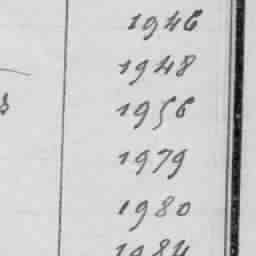 1946
1948
1956
1979
1980
1984